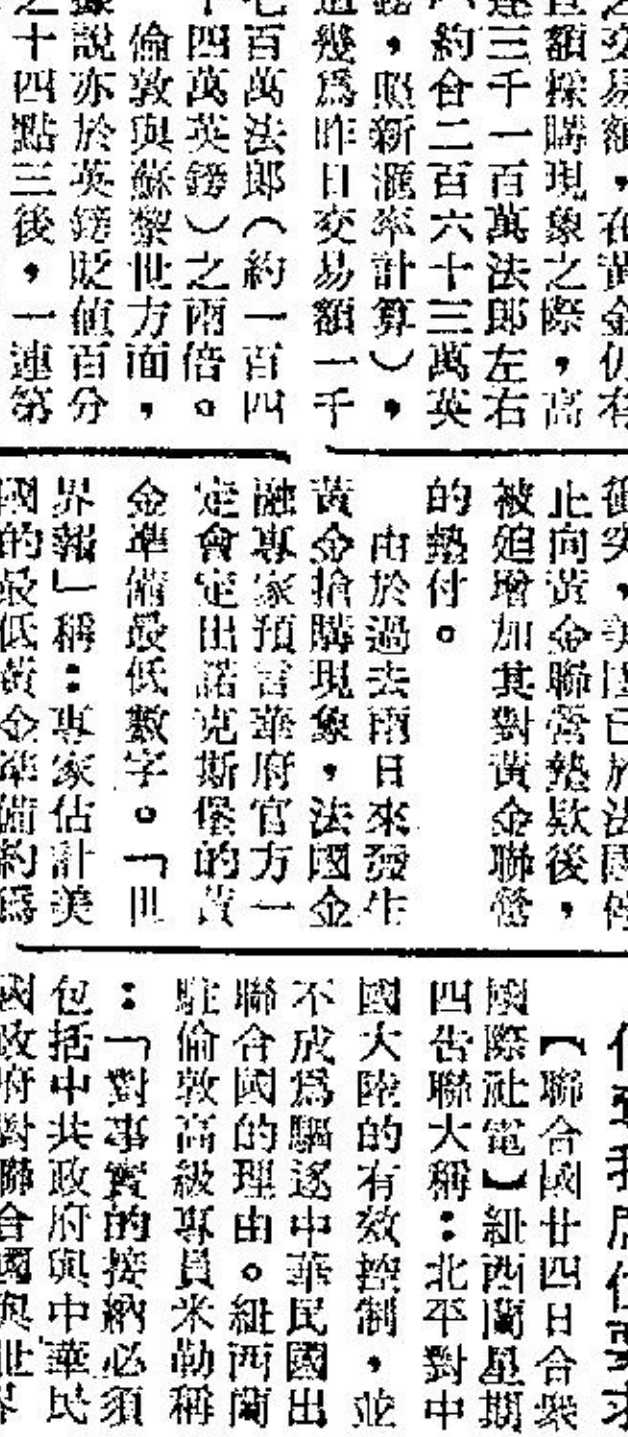 之交易額,在黃金仍有
巨額採購現象之際,高
達三千一百萬法郎左右
(約合二百六十三萬英
鎊,照新滙率計算),
這幾爲昨日交易額一千
七百萬法郎(約一百四
十四萬英鎊)之兩倍。
倫敦與蘇黎世方面,
據說亦於英鎊貶値百分
之十四點三後,一連第
衝突,美國已於法國停
止向黃金聯營墊欵後,
被迫增加其對黃金聯營
的墊付。
由於過去兩日來發生
黃金搶購現象,法國金
融專家預言華府官方一
定會定出諾克斯堡的黃
金準備最低數字。「世
界報」稱:專家估計美
國的最低黃金準備約爲
【聯合國廿四日合衆
國際社電】紐西蘭星期
四告聯大稱:北平對中
國大陸的有效控制,並
不成爲驅逐中華民國出
聯合國的理由。紐西蘭
駐倫敦高級專員米勒稱
:「對事實的接納必須
包括中共政府與中華民
國政府對聯合國與世界